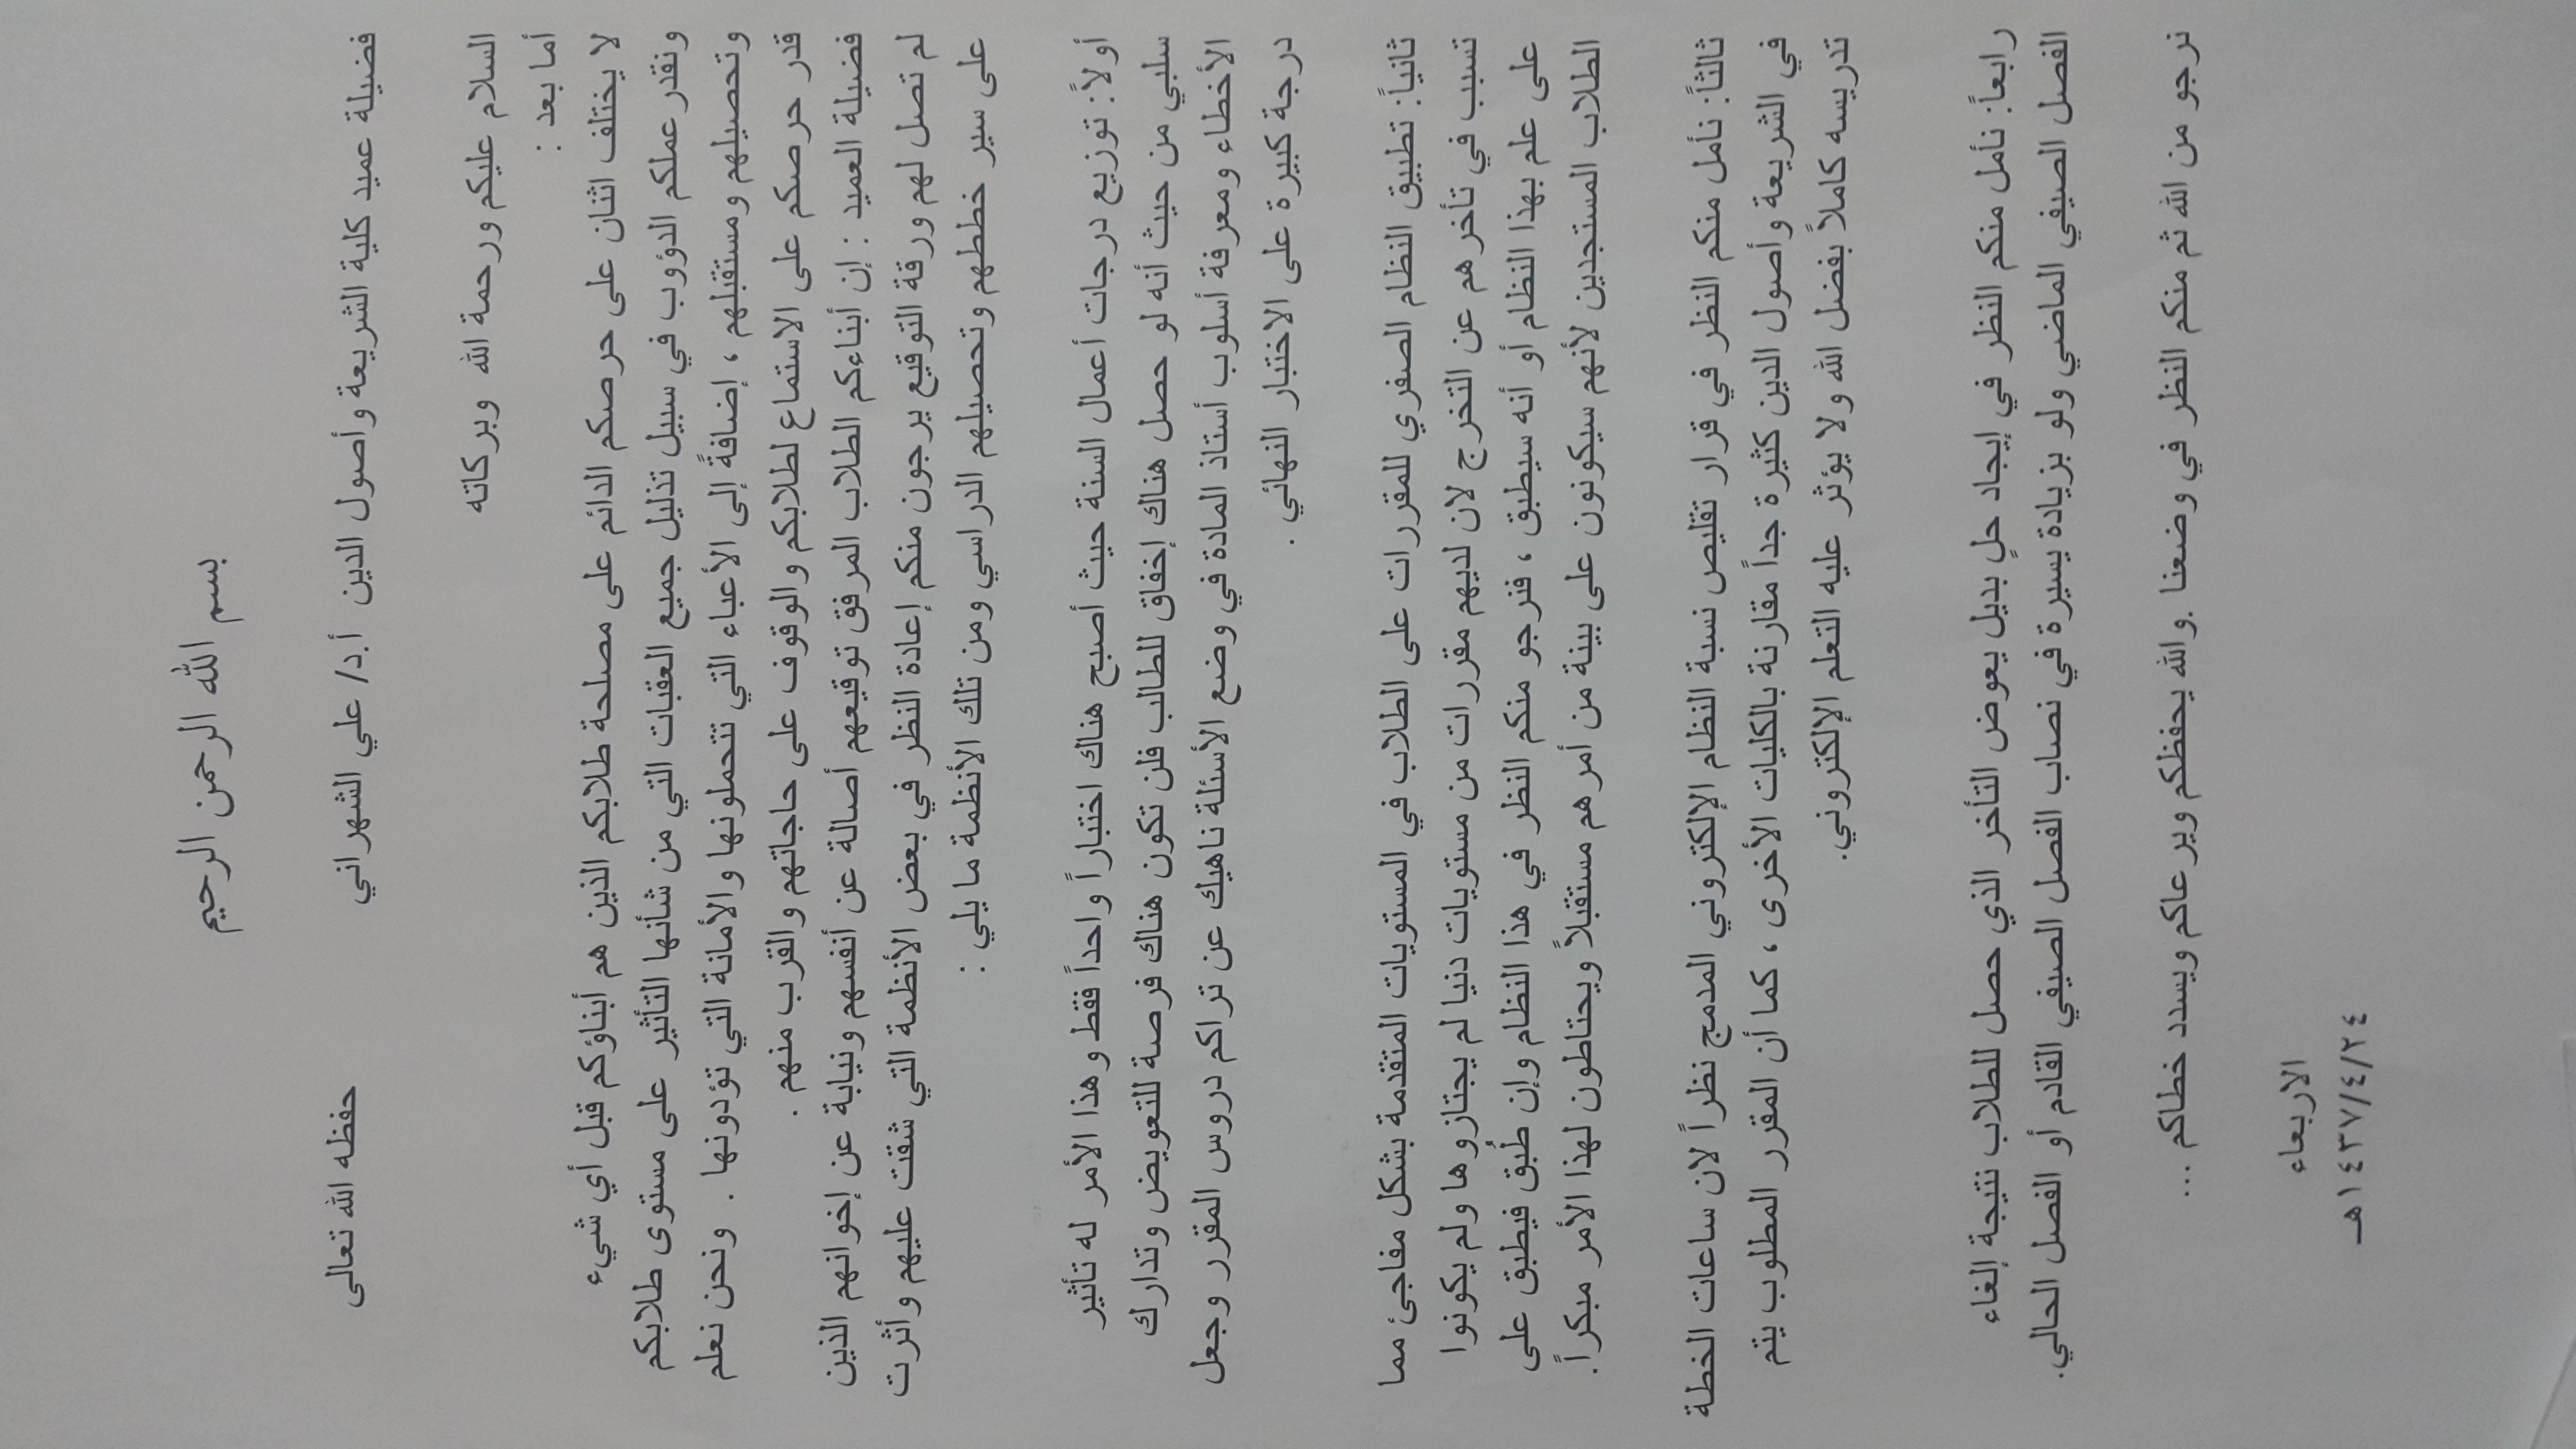 بسم الله الرحمن الرحيم
فضيلة عميد كلية الشريعة وأصول الدين أ.د/ علي الشهراني حفظه الله تعالى
السلام عليكم ورحمة الله وبركاته
أما بعد :
لا يختلف اثنان على حرصكم الدائم على مصلحة طلابكم الذين هم أبناؤكم قبل أي شيء
ونقدر عملكم الدؤوب في سبيل تذليل جميع العقبات التي من شأنها التأثير على مستوى طلابكم
وتحصيلهم ومستقبلهم ، إضافةً إلى الأعباء التي تتحملونها والأمانة التي تؤدونها . ونحن نعلم
قدر حرصكم على الاستماع لطلابكم والوقوف على حاجاتهم والقرب منهم .
فضيلة العميد : إن أبناءكم الطلاب المرفق توقيعهم أصالة عن أنفسهم ونيابة عن إخوانهم الذين
لم تصل لهم ورقة التوقيع يرجون منكم إعادة النظر في بعض الأنظمة التي شقت عليهم وأثرت
على سير خططهم وتحصيلهم الدراسي ومن تلك الأنظمة ما يلي :
أولاً: توزيع درجات أعمال السنة حيث أصبح هناك اختباراً واحداً فقط وهذا الأمر له تأثير
سلبي من حيث أنه لو حصل هناك إخفاق للطالب فلن تكون هناك فرصة للتعويض وتدارك
الأخطاء ومعرفة أسلوب أستاذ المادة في وضع الأسئلة ناهيك عن تراكم دروس المقرر وجعل
درجة كبيرة على الاختبار النهائي .
ثانياً: تطبيق النظام الصفري للمقررات على الطلاب في المستويات المتقدمة بشكل مفاجئ مما
تسبب في تأخرهم عن التخرج لان لديهم مقررات من مستويات دنيا لم يجتازوها ولم يكونوا
على علم بهذا النظام أو أنه سيطبق ، فنرجو منكم النظر في هذا النظام وإن طُبق فيطبق على
الطلاب المستجدين لأنهم سيكونون على بينة من أمرهم مستقبلاً ويحتاطون لهذا الأمر مبكراً.
ثالثاً: نأمل منكم النظر في قرار تقليص نسبة النظام الإلكتروني المدمج نظراً لان ساعات الخطة
في الشريعة وأصول الدين كثيرة جداً مقارنة بالكليات الأخرى ، كما أن المقرر المطلوب يتم
تدريسه كاملاً بفضل الله ولا يؤثر عليه التعلم الإلكتروني.
رابعاً: نأمل منكم النظر في إيجاد حلٍ بديل يعوض التأخر الذي حصل للطلاب نتيجة إلغاء
الفصل الصيفي الماضي ولو بزيادة يسيرة في نصاب الفصل الصيفي القادم أو الفصل الحالي.
نرجو من الله ثم منكم النظر في وضعنا .والله يحفظكم ويرعاكم ويسدد خطاكم ...
الاربعاء
١٤٣٧/٤/٢٤هـ